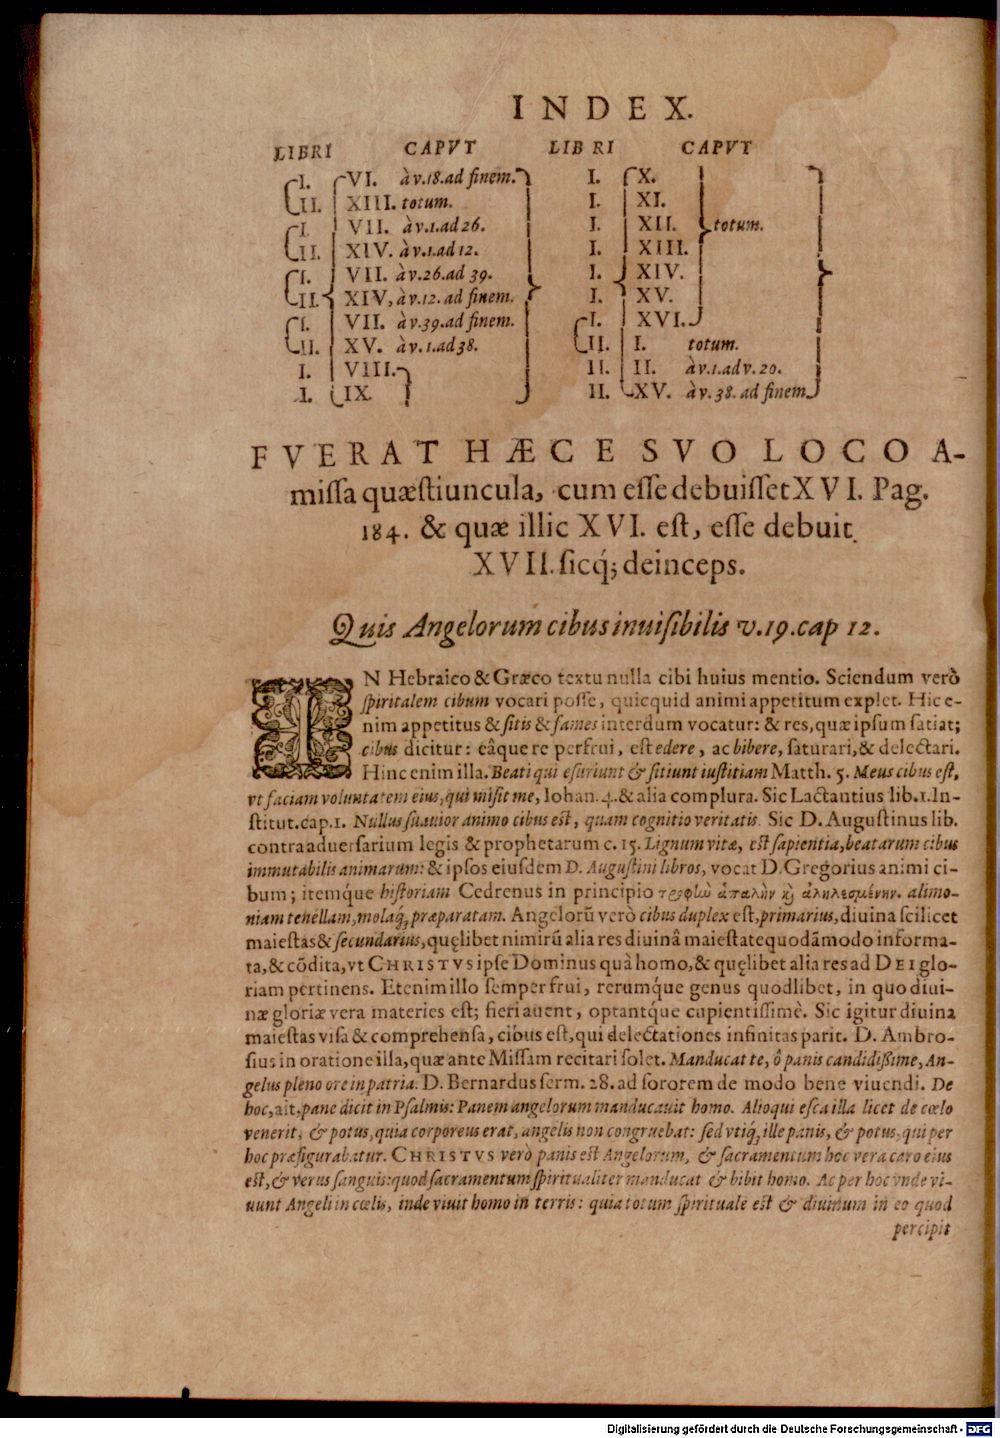 INDEX.
LIBRI CAPVT LIBRI CAPVT
I. VI. à v.18.ad finem. I. X.
II. XIII. totum. I. XI.
I. VII. à v.1.ad 26. I. XII. totum.
II. XIV. à v.1.ad 12. I. XIII.
I. VII. à v.26.ad 39. I. XIV.
II. XIV, à v.12. ad finem. I. XV.
I. VII. à v.39.ad finem. I. XVI.
II. XV. à v.1.ad 38. II. I. totum.
I. VIII. II. II. à v.1.ad v. 20.
I. IX. II. XV. à v. 38. ad finem
FVERAT HÆCE SVO LOCO A-
missa quæstiuncula, cum esse debuisset XVI. Pag.
184. & quæ illic XVI. est, esse debuit
XVII. sicq́; deinceps.
Quis Angelorum cibus inuisibilis v.19.cap 12.
IN Hebraico & Græco textu nulla cibi huius mentio. Sciendum verò
spiritalem cibum vocari posse, quicquid animi appetitum explet. Hic e-
nim appetitus & sitis & fames interdum vocatur: & res, quæ ipsum satiat;
cibus dicitur: eâque re perfrui, est edere, ac bibere, saturari, & delectari.
Hinc enim illa. Beati qui esuriunt & sitiunt iustitiam Matth. 5. Meus cibus est,
vt faciam voluntatem eius, qui misit me, Iohan. 4. & alia complura. Sic Lactantius lib.1.In-
stitut.cap.1. Nullus suauior animo cibus est, quam cognitio veritatis. Sic D. Augustinus lib.
contra aduersarium legis & prophetarum c. 15. Lignum vitæ, est sapientia, beatarum cibus
immutabilis animarum: & ipsos eiusdem D. Augustini libros, vocat D. Gregorius animi ci-
bum; itemq́ue historiam Cedrenus in principio ἁπαλὴν alimo-
niam tenellam, molaq́; præparatam. Angelorũ verò cibus duplex est, primarius, diuina scilicet
maiestas & secundarius, quęlibet nimirũ alia res diuinâ maiestate quodãmodo informa-
ta, & cõdita, vt CHRISTVS ipse Dominus quà homo, & quęlibet alia res ad DEI glo-
riam pertinens. Etenim illo semper frui, rerumque genus quodlibet, in quo diui-
næ gloriæ vera materies est; fieri auent, optantq́ue cupientissimè. Sic igitur diuina
maiestas visa & comprehensa, cibus est, qui delectationes infinitas parit. D. Ambro-
sius in oratione illa, quæ ante Missam recitari solet. Manducat te, ô panis candidissime, An-
gelus pleno ore in patria. D. Bernardus serm. 28. ad sororem de modo bene viuendi. De
hoc, ait, pane dicit in Psalmis: Panem angelorum manducauit homo. Alioqui esca illa licet de cœlo
venerit, & potus, quia corporeus erat, angelis non congruebat: sed vtiq́; ille panis, & potus, qui per
hoc præfigurabatur. CHRISTVS verò panis est Angelorum, & sacramentum hoc vera caro eius
est, & verus sanguis: quod sacramentum spiritualiter manducat & bibit homo. Ac per hoc vnde vi-
uunt Angeli in cœlis, inde viuit homo in terris: quia totum spirituale est & diuinum in eo quod
percipit
Digitalisierung gefördert durch die Deutsche Forschungsgemeinschaft - DFG